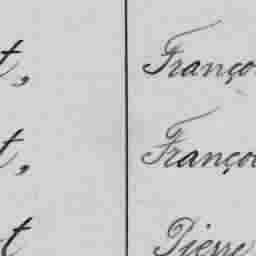 t, Franço
t, Franço
t Pierre